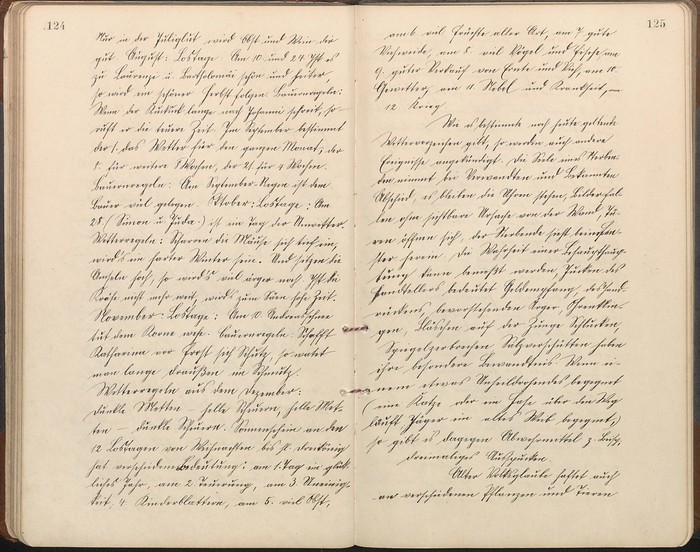 124
Nur in der Juliglut wird Obst und Wein dir
gut. August: Lostage. Am 10. und 24. Ist es
zu Laurenzi u. Bartholomäi schön und heiter,
so wird ein schöner Herbst folgen. Bauernregeln:
Wenn der Kuckuck lange nach Johanni schreit, so
ruft er die teuere Zeit. Im September bestimmt
der 1. das Wetter für den ganzen Monat, der
8. für weitere 8 Wochen, der 21. für 4 Wochen.
Bauernregeln: Am September-Regen ist dem
Bauer viel gelegen. Oktober: Lostage: Am
28. (Simon u. Juda.) ist ein Tag der Unwetter.
Wetterregeln: Scharren die Mäuse sich tief ein,
wird's ein harter Winter sein. Und sitzen die
Amseln hoch, so wird's viel ärger noch. Ist die
Krähe nicht mehr weit, wird's zum Säen hohe Zeit.
November: Lostage: Am 10. Andreasschnee
tut dem Korne wehe. Bauernregeln: Schafft
Katharina vor Frost sich Schutz, so watet
man lange draußen im Schmutz.
Wetterregeln aus dem Dezember:
Dunkle Metten – helle Scheuern, helle Met-
ten – dunkle Scheuern. Sonnenschein an den
12 Lostagen von Weihnachten bis hl. Dreikönig
hat verschiedene Bedeutung: am 1. Tag ein glück-
liches Jahr, am 2. Teuerung, am 3. Uneinig-
keit, 4. Kinderblattern, am 5. viel Obst,
125
am 6. viel Früchte aller Art, am 7. gute
Viehweide, am 8. viel Vögel und Fische, am
9. guter Verkauf von Ernte und Vieh, am 10.
Gewitter, am 11. Nebel und Krankheit, am
12. Krieg.
Wie es bestimmte noch heute geltende
Wetterzeichen gibt, so werden auch andere
Ereignisse angekündigt. Die Seele eines Sterben-
den nimmt bei Verwandten und Bekannten
Abschied, es bleiben die Uhren stehen, Bilder fal-
len ohne sichtbare Ursache von der Wand, Tü-
ren öffnen sich, der Sterbende sieht beim Fen-
ster herein. Die Wahrheit einer Behauptung
kann beniest werden, Jucken des
Handtellers bedeutet Geldempfang, des Hand-
rückens bevorstehenden Ärger, Ohrenklin-
gen, Bläschen auf der Zunge, Schlucken,
Spiegelzerbrechen, Salzverschütten haben
ihre besondere Bewandtnis. Wenn ei-
nem etwas Unheildrohendes begegnet
(eine Katze oder ein Hase über den Weg
läuft, Jäger ein altes Weib begegnet,)
so gibt es dagegen Abwehrmittel z. Beisp.
dreimaliges Ausspucken.
Alter Volksglaube haftet auch
an verschiedenen Pflanzen und Tieren